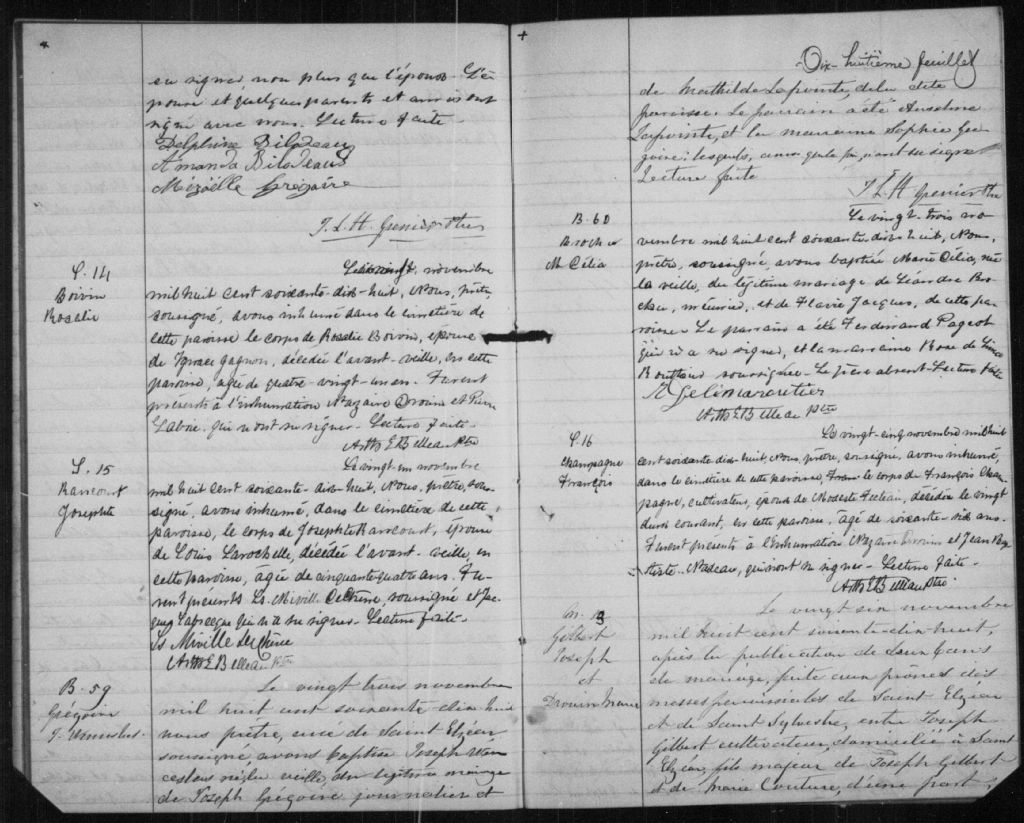 su signer non plus que l'épouse. L'é-
poux et quelques parents et amis ont
signé avec nous. Lecture faite.
Delphine Bilodeau
Amanda Bilodeau
Mizaëlle Grégoire
J. L. H. Grenier Ptre
S. 14
Boivin
Rosalie
Le vingt, novembre
mil huit cent soixante-dix-huit, Nous, prêtre,
soussigné, avons inhumé dans le cimetière de
cette paroisse le corps de Rosalie Boivin, épouse
de Ignace Gagnon, décédée l'avant-veille, en cette
paroisse, agée de quatre-vingt-un an. Furent
présents à l'inhumation Nazaire Drouin et Pierre
Labrie qui n'ont su signer. Lecture faite.
Arth E Belleau Ptre
S. 15
Rancourt
Josephte
Le vingt-un novembre
mil huit cent soixante-dix-huit, Nous, prêtre, sous-
signé, avons inhumé, dans le cimetière de cette
paroisse, le corps de Josephte Rancourt, épouse
de Louis Larochelle, décédée l'avant-veille, en
cette paroisse, agée de cinquante quatre ans. Fu-
rent présents Ls. Miville Dechène, soussigné et Jac-
ques Labrecque qui n'a su signer. Lecture faite.
Ls Miville de Chêne
Arth E Belleau Ptre
B. 59
Grégoire
J. Wenceslas.
Le vingt trois novembre
mil huit cent soixante dix huit
nous prêtre, curé de Saint Elzéar,
soussigné, avons baptisé Joseph Wen
ceslas né la veille, du légitime mariage
de Joseph Grégoire journalier et
Dix-huitième feuillet
de Mathilde Lapointe, de la dite
paroisse. Le parrain a été Anselme
Lapointe, et la marraine Sophie Gré
goire; lesquels, ainsi que le père, n'ont su signer
Lecture faite
J L H Grenier Ptre
B. 60
Brochu
M. Célia
Le vingt-trois no-
vembre mil huit cent soixante-dix-huit, Nous,
prêtre, soussigné, avons baptisé Marie Célia, née
la veille, du légitime mariage de Léandre Bro-
chu, meunier, et de Flavie Jacques, de cette pa-
roisse. Le parrain a été Ferdinand Pageot
qui n'a su signer, et la marraine Rose de Lima
soussignée. Le père absent. Lecture faite
Arth E Belleau Ptre
S. 16
Champagne
François
Le vingt-cinq novembre mil huit
cent soixante-dix-huit, Nous, prêtre, soussigné, avons inhumé,
dans le cimetière de cette paroisse, le corps de François Cham
pagne, cultivateur, époux de Modeste décédé le vingt
deux courant, en cette paroisse, agé de soixante-dix ans.
Furent présents à l'inhumation Nazaire Drouin et Jean Bap
tiste Nadeau, qui n'ont su signer. Lecture faite.
Arth E Belleau Ptre
M. 13
Gilbert
Joseph
et
Drouin Marie
Le vingt six novembre
mil huit cent soixante-dix huit,
après la publication de deux bans
de mariage, faite aux prônes des
messes paroissiales de Saint Elzéar
et de Saint Sylvestre, entre Joseph
Gilbert cultivateur, domicilié à Saint
Elzéar, fils majeur de Joseph Gilbert
et de Marie Couture, d'une part,